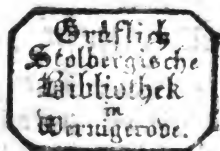 Gräflich
Stolbergische
Bibliothek
in
Wernigerode.